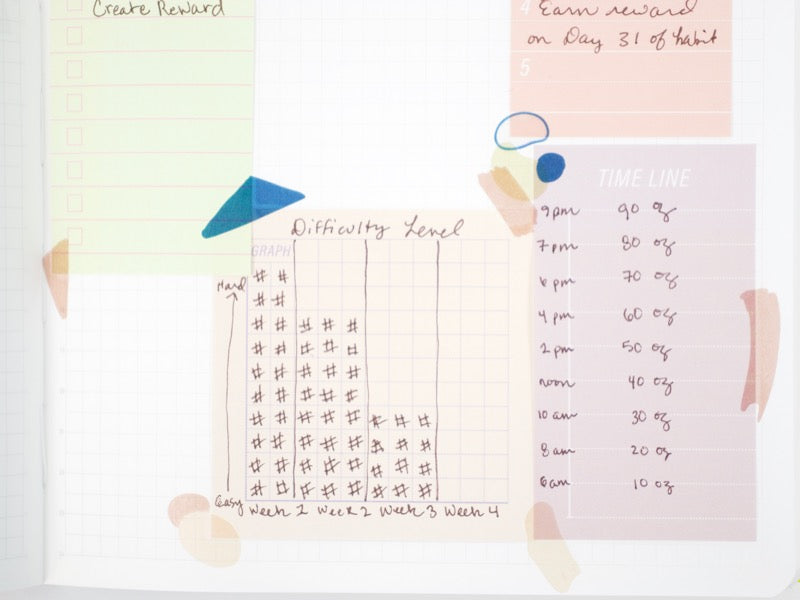 Create Reward
4 Earn reward
on Day 31 of habit
5
TIME LINE
9pm 90 oz
7pm 80 oz
6 pm 70 oz
4 pm 60 oz
2 pm 50 oz
noon 40 oz
10 am 30 oz
8am 20 oz
6am 10 oz
Difficulty Level
GRAPH
Hard
# #
# #
# # # # #
# # # # #
# # # # #
# # # # #
# # # # # # # #
# # # # # # # #
# # # # # # # #
# # # # # # # #
Easy
Week 1 Week 2 Week 3 Week 4